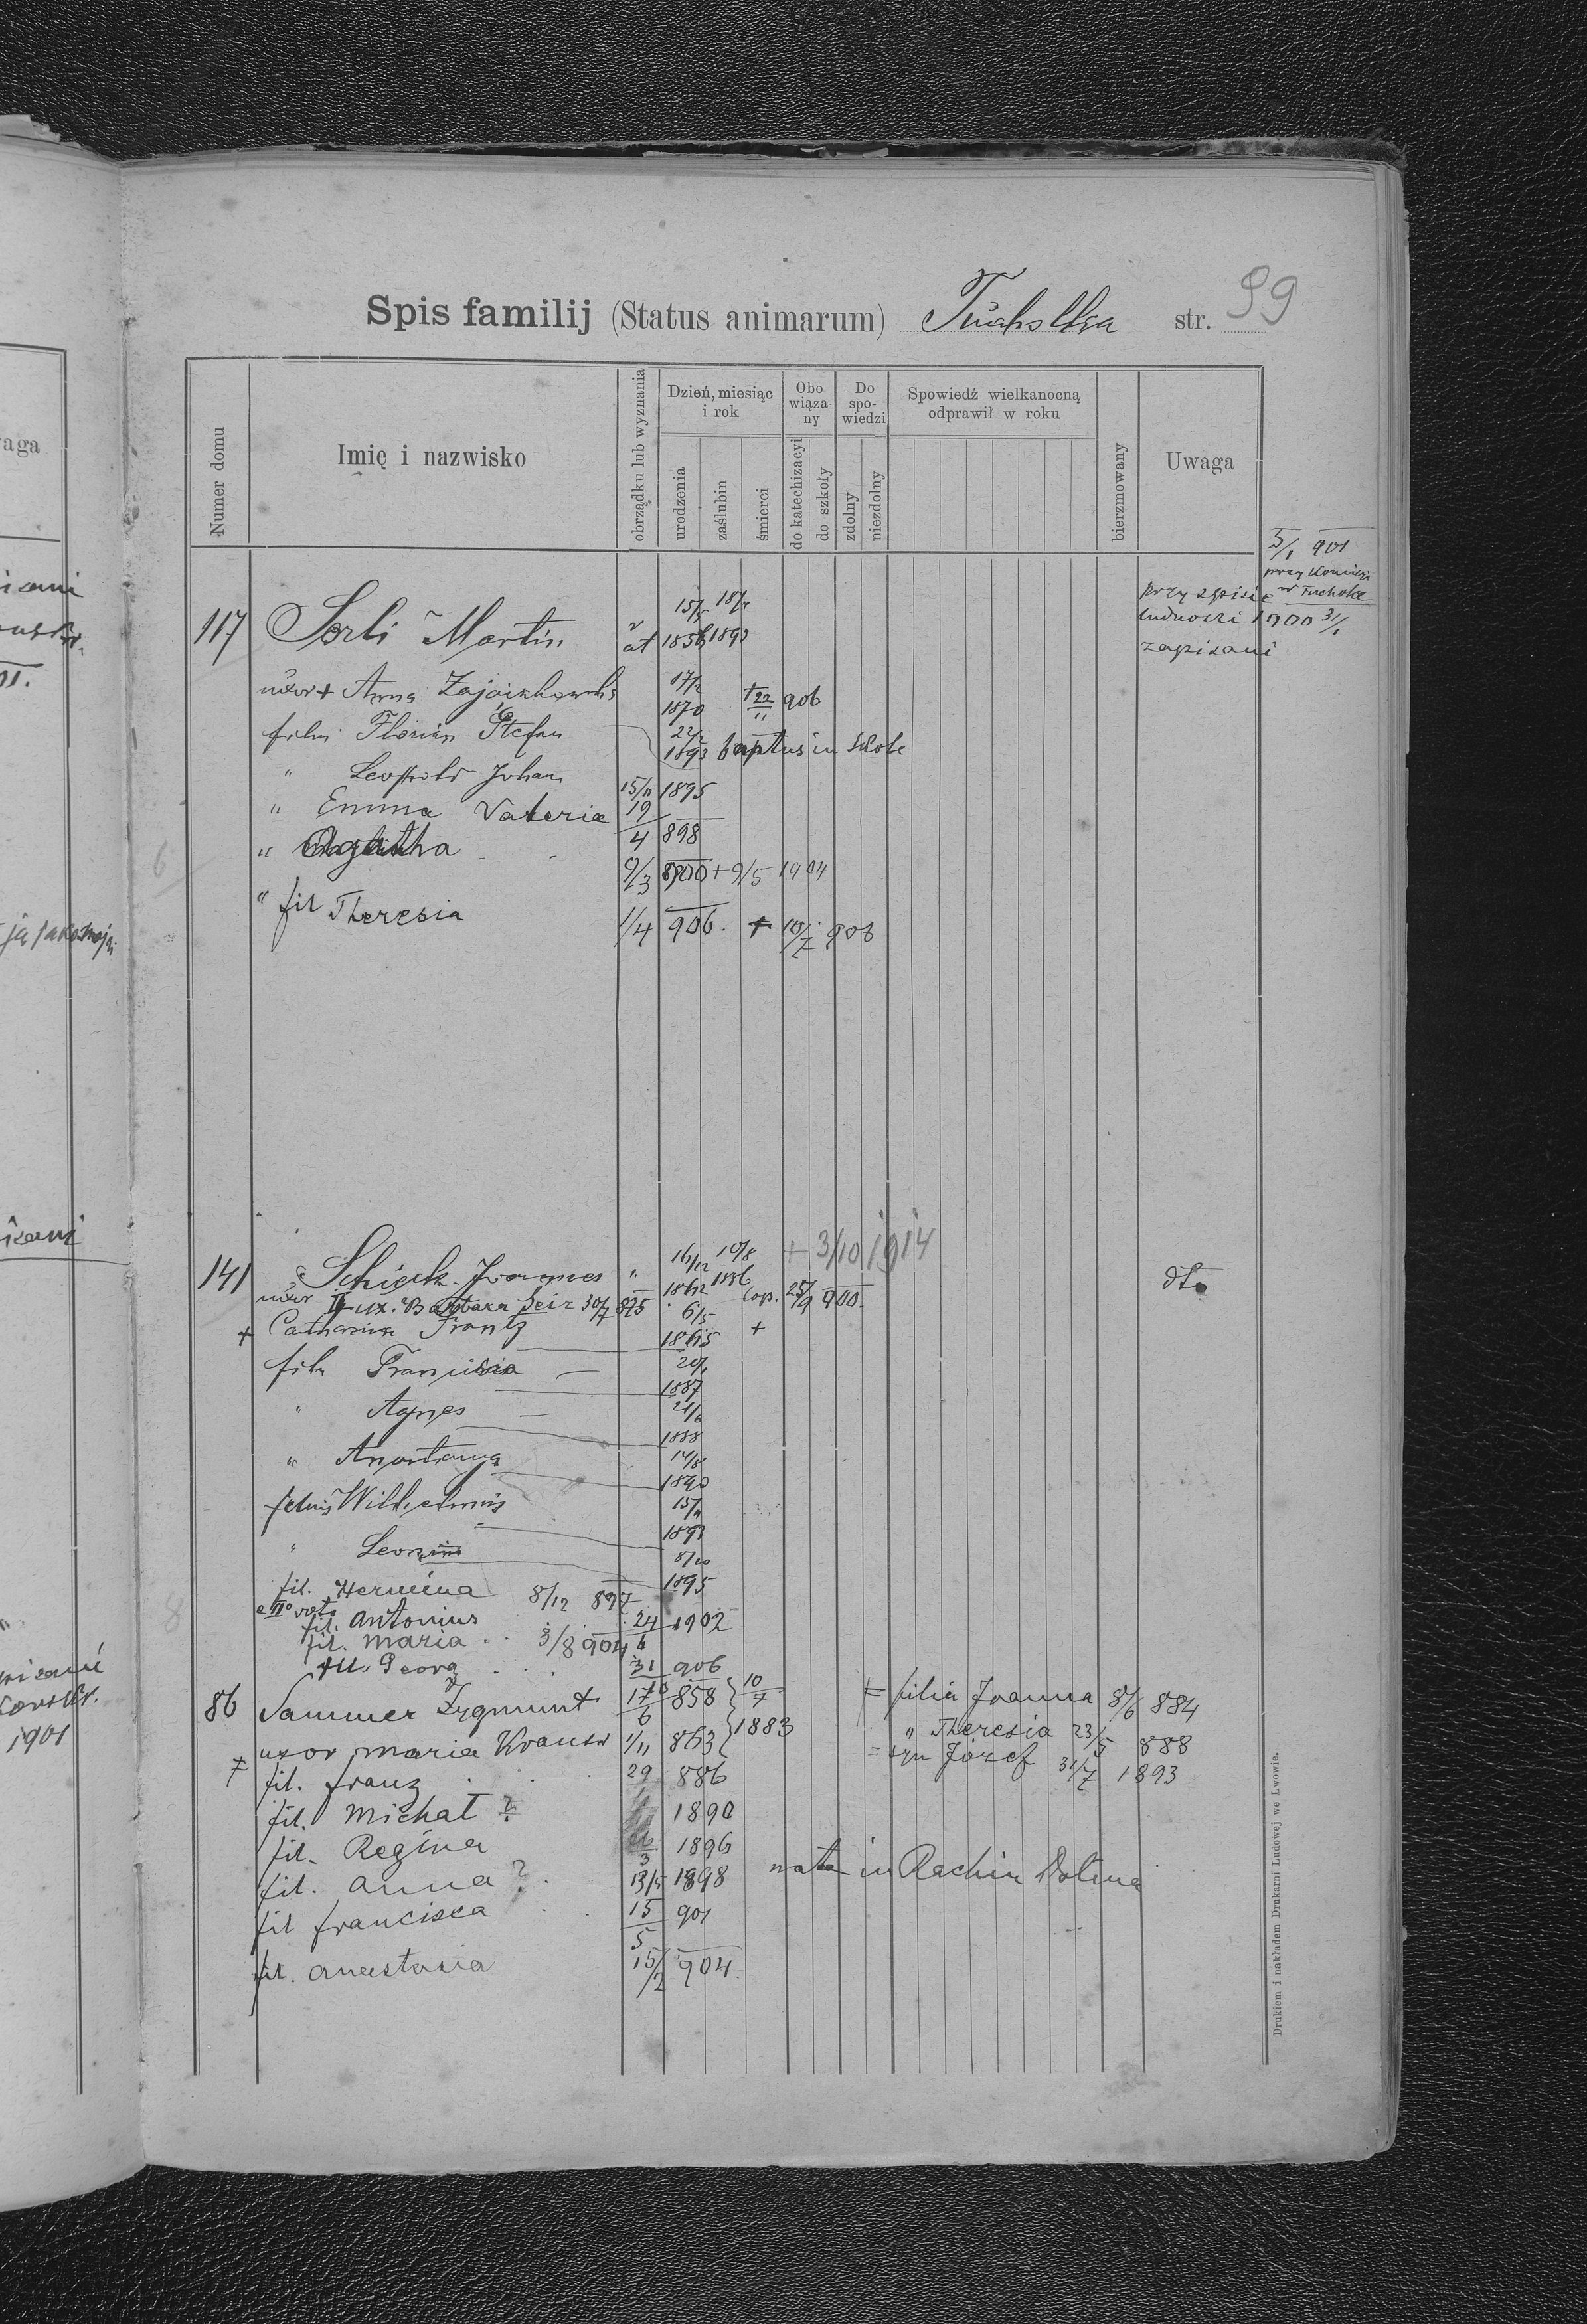 Spis familij (Status animarum) Tucholka str. 99
Numer domu
Imię i nazwisko
obrządku lub wyznania
Dzień, miesiąc i rok
urodzenia
zaślubin
śmierci
Obowiązany
do katechizacyi
do szkoły
Do spowiedzi
zdolny
niezdolny
Spowiedź wielkanocną odprawił w roku
bierzmowany
Uwaga
5/1 901
przy
w Tucholce
przy spisie
ludności 1900 31/1
zapisani
117 Serli Martin 15/5 1893
uxor + Anna 17/2 1870 + 22/11 906
filius Florian Stefan 22/2 1893 baptus in Skole
" Leopold Johan 15/11 1895
" Emma Valeria 19/4 898
" Agatha 9/3 900 + 9/5 1904
" fil Theresia 1/4 906. + 10/7 906
141 Schieck Joannes " 16/12 1862 10/8 1886 + 3/10 1914 dto
uxor II ux. Barbara Seir 30/7 875 cop. 25/9 900.
+ Catharina Frantz 6/5 1865 +
filia Francisca 20/1 1887
" Agnes 21/6 1888
" 14/8 1890
filius Wilhelmus 15/11 1893
" Leon 8/10 1895
fil. Hermina 8/12 897
e IIo voto
fil. Antonius 24/6 1902
fil. Maria . . 3/8 904
fil. Georg . . . 31 906
86 Sammer Zygmunt 17/6 858 10/7 1883
uxor Maria Kraus 1/11 863
+ fil. Franz . . . 29 886
fil. Michał ? 1890
fil. Regina 3 1896
fil. Anna ? 13/5 1898 nata in Rachin Dolina
fil Francisca . . 15/5 901
fil. Anastasia 15/2 904.
= filia Joanna 8/6 884
" Theresia 23/5 888
= syn Józef 31/7 1893
Drukiem i nakładem Drukarni Ludowej we Lwowie.
aga
1901